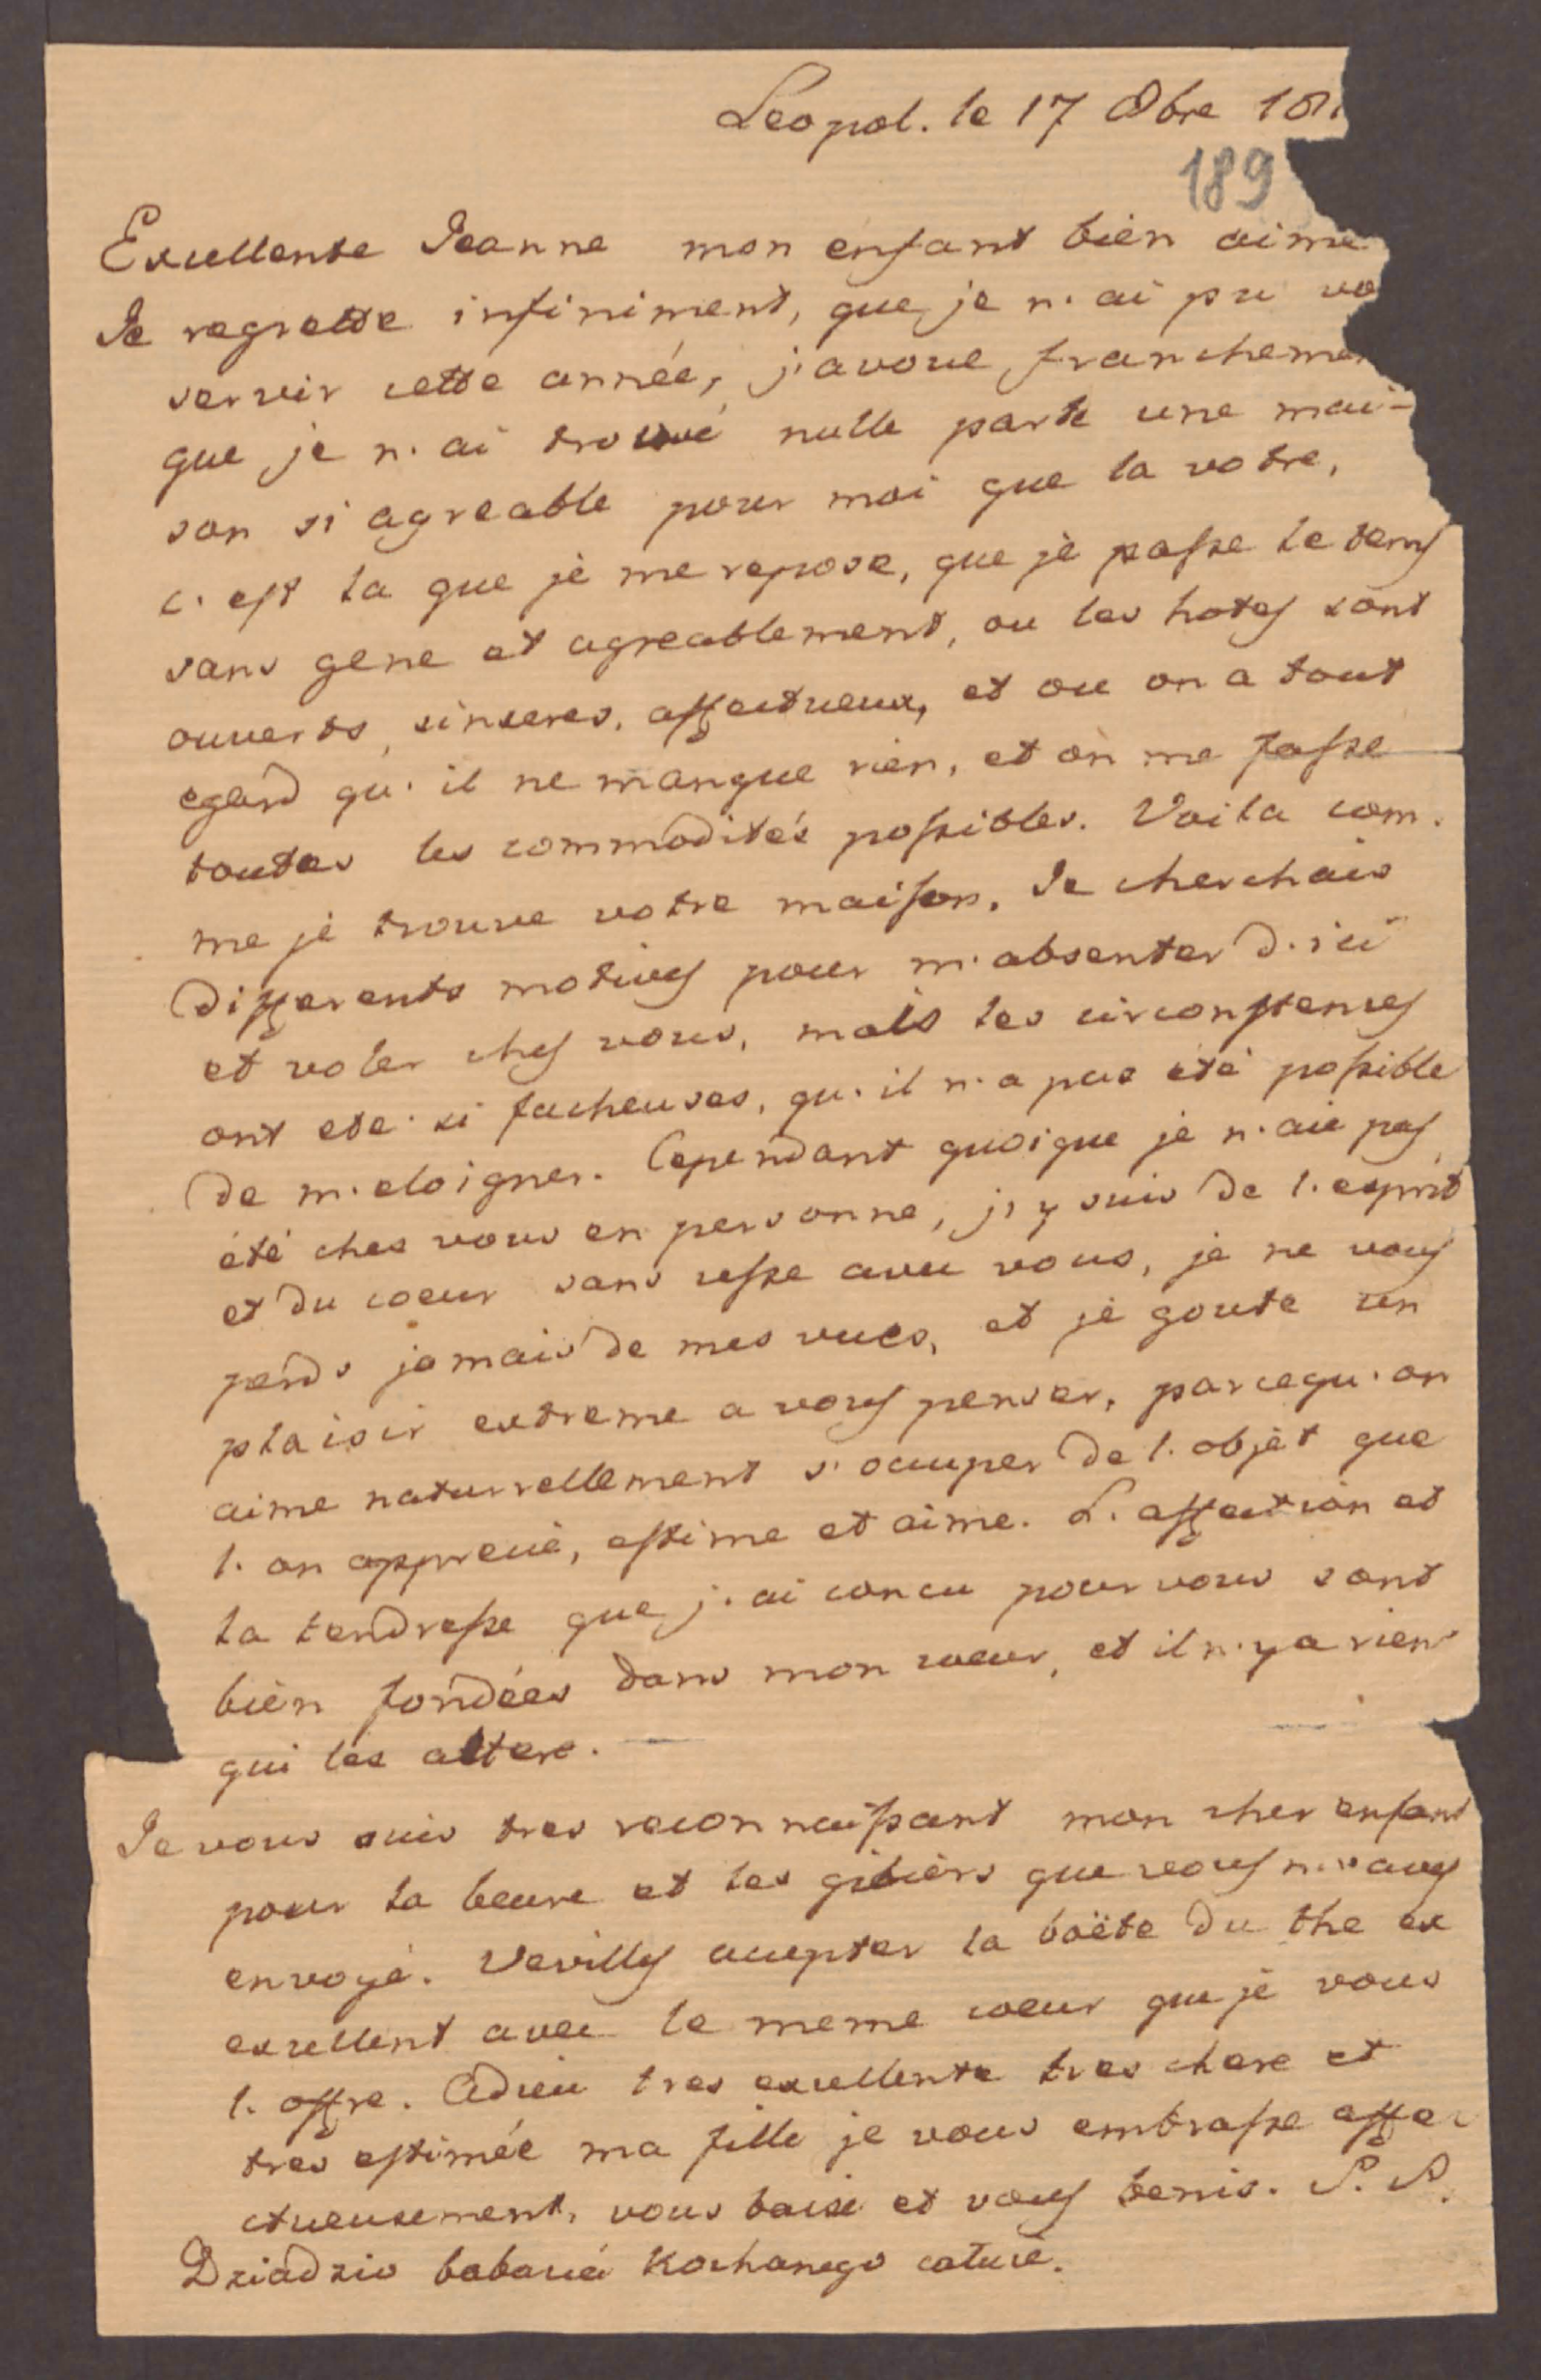 Leopol. le 17 8bre 181
189
Excellente Jeanne mon enfant bien aimé
Je regrette infiniment, que je n'ai pu vo
servir cette année, j'avoue franchemen
que je n'ai trouvé nulle parte une mai-
son si agreable pour moi que la votre,
c'est la que je me repose, que je passe le tems
sans gene et agreablement, ou les hotes sont
ouverts, sinseres, affectueux, et ou on a tout
egard qu'il ne manque rien, et on me fasse
toutes les commodités possibles. Voila com.
me je trouve votre maison. Je cherchais
differents motives pour m'absenter d'ici
et voler ches vous, mais les circonstences
ont eté si facheuses, qu'il n'a pas été possible
de m'eloigner. Cependant quoique je n'aie pas
été ches vous en personne, j'y suis de l'esprit
et du coeur sans cesse avec vous, je ne vous
perds jamais de mes vues, et je goute un
plaisir extreme a vous penser, parcequ'on
aime naturrellement s'occuper de l'objet que
l'on apprecié, estime et aime. L'affection et
la tendresse que j'ai concu pour vous sont
bien fondées dans mon coeur, et il n'y a rien
qui les altere. —
Je vous suis tres reconnaissant mon cher enfant
pour la beure et les gibiers que vous m'aves
envoyé. Veuilles accepter la boëte du the ex
excellent avec le meme coeur que je vous
l'offre. Adieu tres excellente tres chere et
tres estimée ma fille je vous embrasse affe
ctueusement, vous baise et vous benis. P. S.
Dziadzio kochanego caluie.